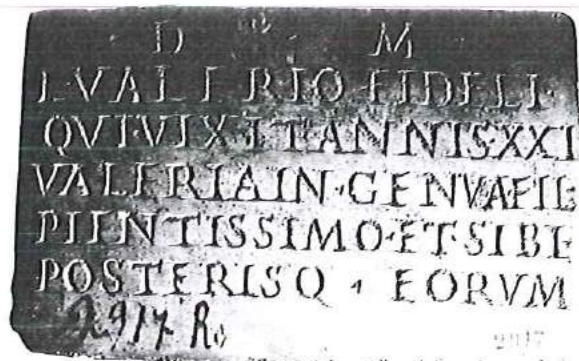 D M
L·VALERIO·FIDELI·
QVI·VIXIT·ANNIS·XXI
VALERIA·IN·GENVA·FIL·
PIENTISSIMO·ET·SIBI
POSTERISQ · EORVM
2917 Ro
2917